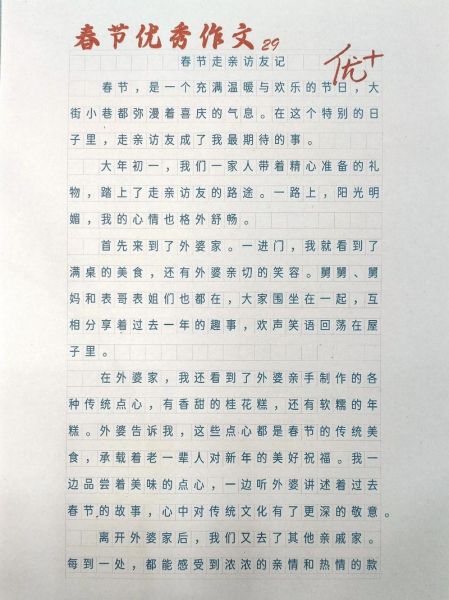 春节优秀作文29
春节走亲访友记
优+
春节，是一个充满温暖与欢乐的节日，大
街小巷都弥漫着喜庆的气息。在这个特别的日
子里，走亲访友成了我最期待的事。
大年初一，我们一家人带着精心准备的礼
物，踏上了走亲访友的路途。一路上，阳光明
媚，我的心情也格外舒畅。
首先来到了外婆家。一进门，我就看到了
满桌的美食，还有外婆亲切的笑容。舅舅、舅
妈和表哥表姐们也都在，大家围坐在一起，互
相分享着过去一年的趣事，欢声笑语回荡在屋
子里。
在外婆家，我还看到了外婆亲手制作的各
种传统点心，有香甜的桂花糕，还有软糯的年
糕。外婆告诉我，这些点心都是春节的传统美
食，承载着老一辈人对新年的美好祝福。我一
边品尝着美味的点心，一边听外婆讲述着过去
春节的故事，心中对传统文化有了更深的敬意。
离开外婆家后，我们又去了其他亲戚家。
每到一处，都能感受到浓浓的亲情和热情的款